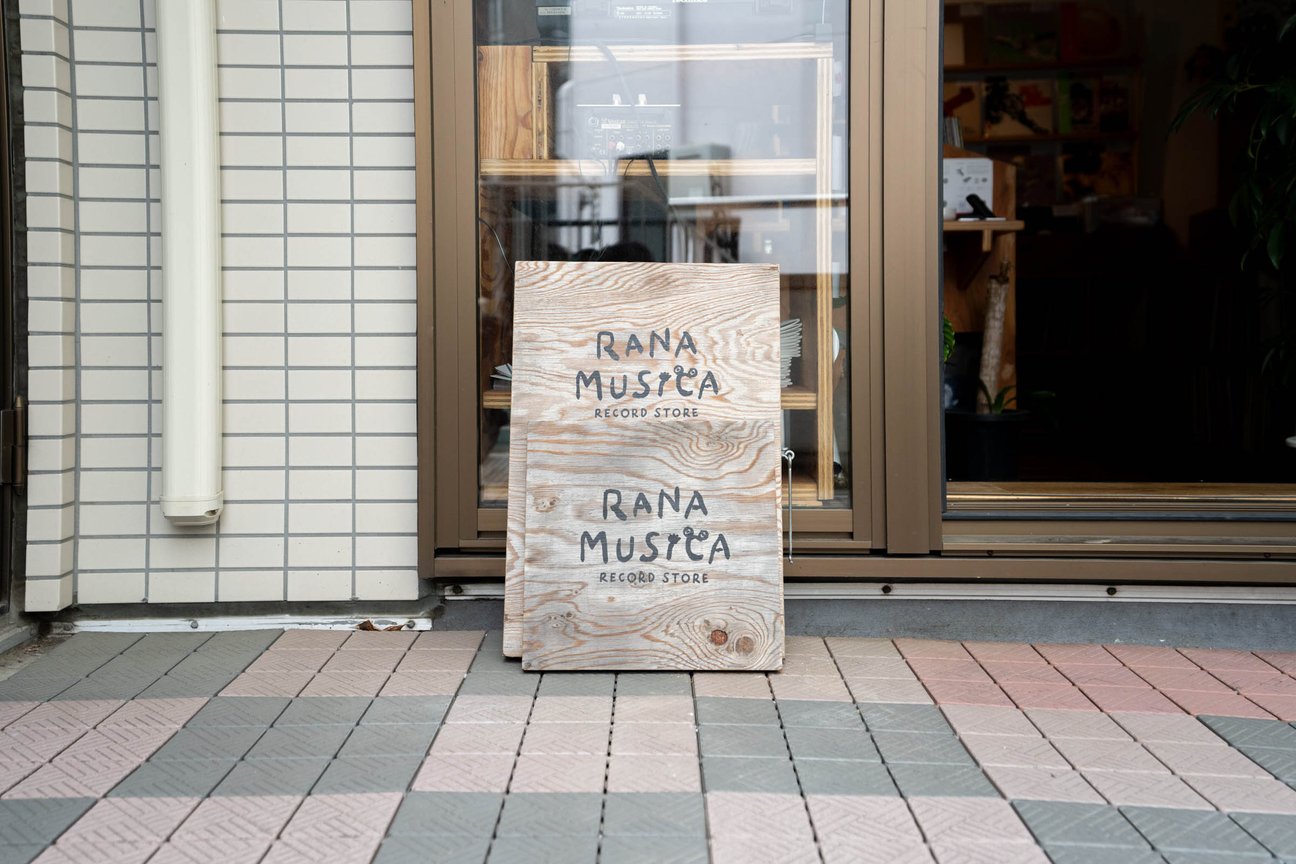 RANA
MUSICA
RECORD STORE
RANA
MUSICA
RECORD STORE